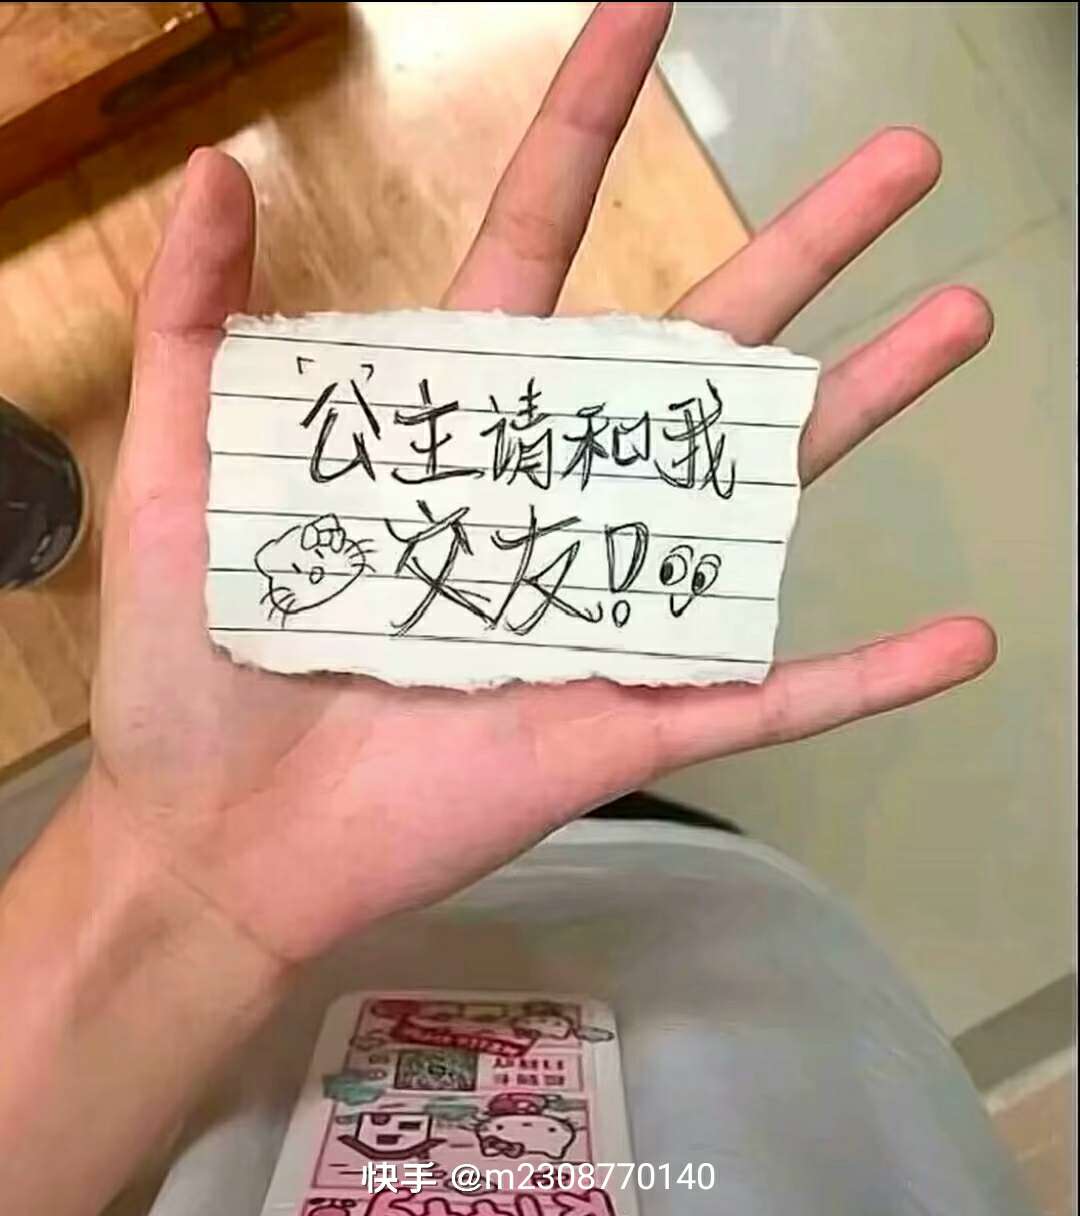 「公」主请和我
交友!
快手 @m2308770140